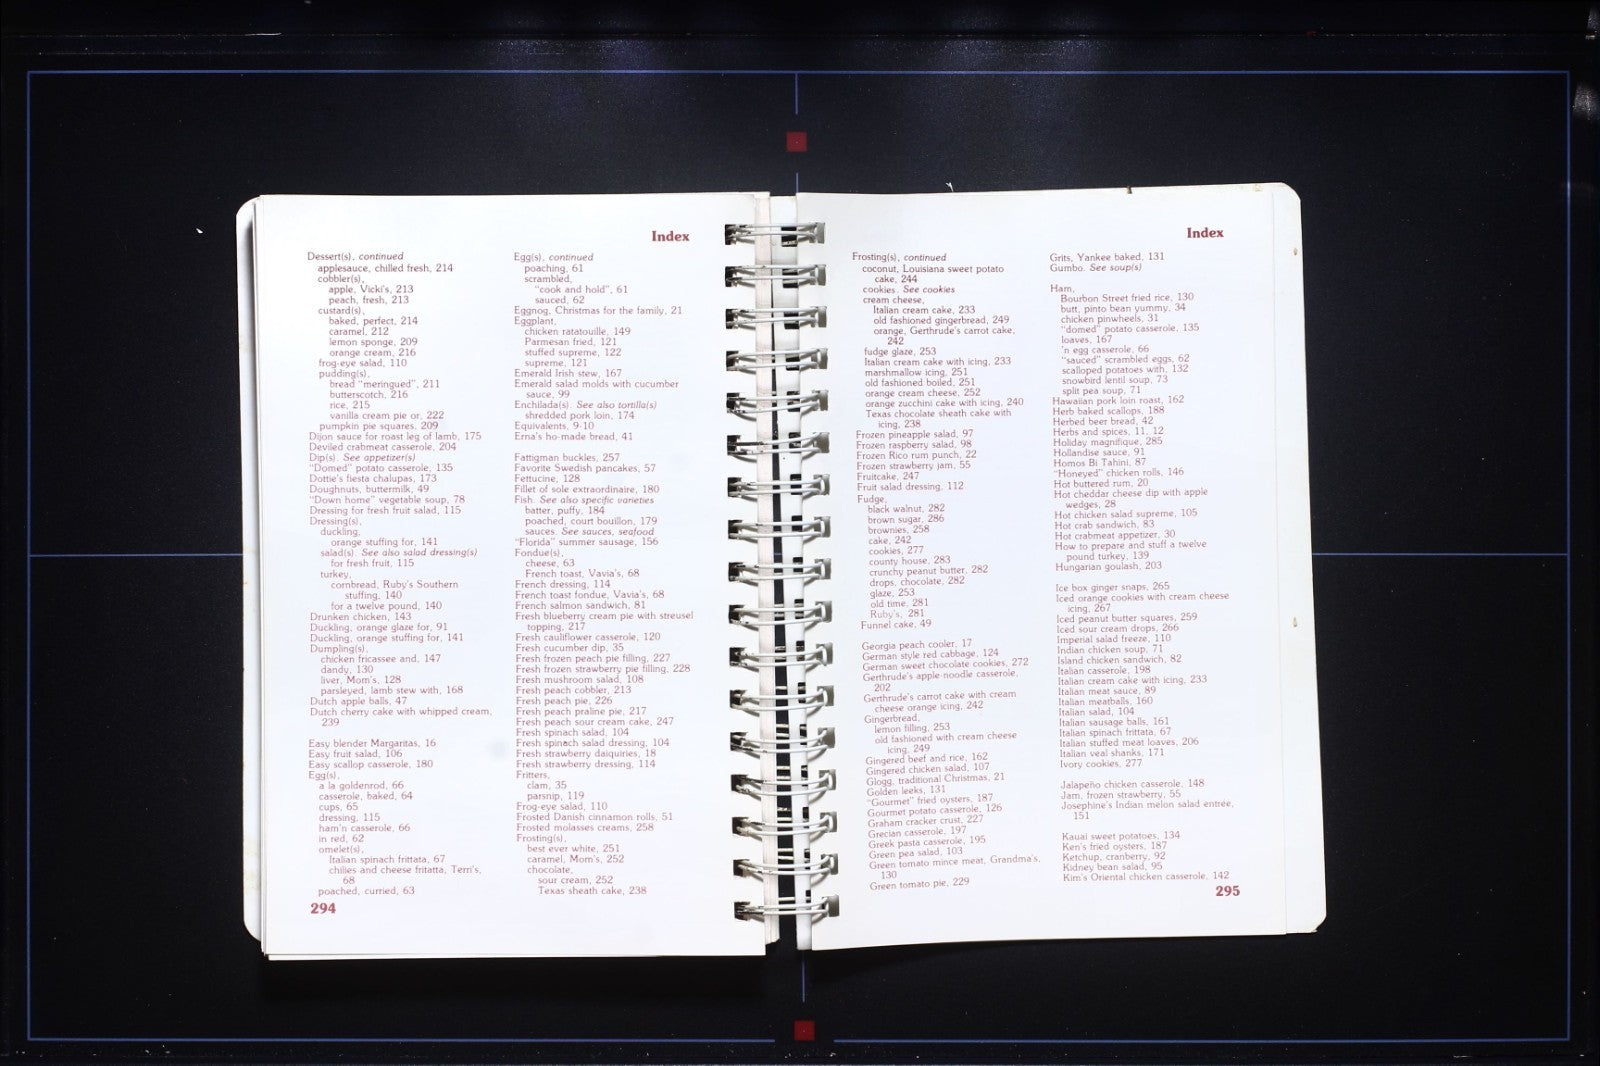 Index
Dessert(s), continued
applesauce, chilled fresh, 214
cobbler(s),
apple, Vicki's, 213
peach, fresh, 213
custard(s),
baked, perfect, 214
caramel, 212
lemon sponge, 209
orange cream, 216
frog-eye salad, 110
pudding(s),
bread "meringued", 211
butterscotch, 216
rice, 215
vanilla cream pie or, 222
pumpkin pie squares, 209
Dijon sauce for roast leg of lamb, 175
Deviled crabmeat casserole, 204
Dip(s). See appetizer(s)
"Domed" potato casserole, 135
Dottie's fiesta chalupas, 173
Doughnuts, buttermilk, 49
"Down home" vegetable soup, 78
Dressing for fresh fruit salad, 115
Dressing(s),
duckling,
orange stuffing for, 141
salad(s). See also salad dressing(s)
for fresh fruit, 115
turkey,
cornbread, Ruby's Southern
stuffing, 140
for a twelve pound, 140
Drunken chicken, 143
Duckling, orange glaze for, 91
Duckling, orange stuffing for, 141
Dumpling(s),
chicken fricassee and, 147
dandy, 130
liver, Mom's, 128
parsleyed, lamb stew with, 168
Dutch apple balls, 47
Dutch cherry cake with whipped cream,
239
Easy blender Margaritas, 16
Easy fruit salad, 106
Easy scallop casserole, 180
Egg(s),
a la goldenrod, 66
casserole, baked, 64
cups, 65
dressing, 115
ham'n casserole, 66
in red, 62
omelet(s),
Italian spinach frittata, 67
chilies and cheese fritatta, Terri's,
68
poached, curried, 63
294
Egg(s), continued
poaching, 61
scrambled,
"cook and hold", 61
sauced, 62
Eggnog, Christmas for the family, 21
Eggplant,
chicken ratatouille, 149
Parmesan fried, 121
stuffed supreme, 122
supreme, 121
Emerald Irish stew, 167
Emerald salad molds with cucumber
sauce, 99
Enchilada(s). See also tortilla(s)
shredded pork loin, 174
Equivalents, 9-10
Erna's ho-made bread, 41
Fattigman buckles, 257
Favorite Swedish pancakes, 57
Fettucine, 128
Fillet of sole extraordinaire, 180
Fish. See also specific varieties
batter, puffy, 184
poached, court bouillon, 179
sauces. See sauces, seafood
"Florida" summer sausage, 156
Fondue(s),
cheese, 63
French toast, Vavia's, 68
French dressing, 114
French toast fondue, Vavia's, 68
French salmon sandwich, 81
Fresh blueberry cream pie with streusel
topping, 217
Fresh cauliflower casserole, 120
Fresh cucumber dip, 35
Fresh frozen peach pie filling, 227
Fresh frozen strawberry pie filling, 228
Fresh mushroom salad, 108
Fresh peach cobbler, 213
Fresh peach pie, 226
Fresh peach praline pie, 217
Fresh peach sour cream cake, 247
Fresh spinach salad, 104
Fresh spinach salad dressing, 104
Fresh strawberry daiquiries, 18
Fresh strawberry dressing, 114
Fritters,
clam, 35
parsnip, 119
Frog-eye salad, 110
Frosted Danish cinnamon rolls, 51
Frosted molasses creams, 258
Frosting(s),
best ever white, 251
caramel, Mom's, 252
chocolate,
sour cream, 252
Texas sheath cake, 238
Index
Frosting(s), continued
coconut, Louisiana sweet potato
cake, 244
cookies. See cookies
cream cheese,
Italian cream cake, 233
old fashioned gingerbread, 249
orange, Gerthrude's carrot cake,
242
fudge glaze, 253
Italian cream cake with icing, 233
marshmallow icing, 251
old fashioned boiled, 251
orange cream cheese, 252
orange zucchini cake with icing, 240
Texas chocolate sheath cake with
icing, 238
Frozen pineapple salad, 97
Frozen raspberry salad, 98
Frozen Rico rum punch, 22
Frozen strawberry jam, 55
Fruitcake, 247
Fruit salad dressing, 112
Fudge,
black walnut, 282
brown sugar, 286
brownies, 258
cake, 242
cookies, 277
county house, 283
crunchy peanut butter, 282
drops, chocolate, 282
glaze, 253
old time, 281
Ruby's, 281
Funnel cake, 49
Georgia peach cooler, 17
German style red cabbage, 124
German sweet chocolate cookies, 272
Gerthrude's apple-noodle casserole,
202
Gerthrude's carrot cake with cream
cheese orange icing, 242
Gingerbread,
lemon filling, 253
old fashioned with cream cheese
icing, 249
Gingered beef and rice, 162
Gingered chicken salad, 107
Glogg, traditional Christmas, 21
Golden leeks, 131
"Gourmet" fried oysters, 187
Gourmet potato casserole, 126
Graham cracker crust, 227
Grecian casserole, 197
Greek pasta casserole, 195
Green pea salad, 103
Green tomato mince meat, Grandma's,
130
Green tomato pie, 229
Grits, Yankee baked, 131
Gumbo. See soup(s)
Ham,
Bourbon Street fried rice, 130
butt, pinto bean yummy, 34
chicken pinwheels, 31
"domed" potato casserole, 135
loaves, 167
'n egg casserole, 66
"sauced" scrambled eggs, 62
scalloped potatoes with, 132
snowbird lentil soup, 73
split pea soup, 71
Hawaiian pork loin roast, 162
Herb baked scallops, 188
Herbed beer bread, 42
Herbs and spices, 11, 12
Holiday magnifique, 285
Hollandise sauce, 91
Homos Bi Tahini, 87
"Honeyed" chicken rolls, 146
Hot buttered rum, 20
Hot cheddar cheese dip with apple
wedges, 28
Hot chicken salad supreme, 105
Hot crab sandwich, 83
Hot crabmeat appetizer, 30
How to prepare and stuff a twelve
pound turkey, 139
Hungarian goulash, 203
Ice box ginger snaps, 265
Iced orange cookies with cream cheese
icing, 267
Iced peanut butter squares, 259
Iced sour cream drops, 266
Imperial salad freeze, 110
Indian chicken soup, 71
Island chicken sandwich, 82
Italian casserole, 198
Italian cream cake with icing, 233
Italian meat sauce, 89
Italian meatballs, 160
Italian salad, 104
Italian sausage balls, 161
Italian spinach frittata, 67
Italian stuffed meat loaves, 206
Italian veal shanks, 171
Ivory cookies, 277
Jalapeño chicken casserole, 148
Jam, frozen strawberry, 55
Josephine's Indian melon salad entrée,
151
Kauai sweet potatoes, 134
Ken's fried oysters, 187
Ketchup, cranberry, 92
Kidney bean salad, 95
Kim's Oriental chicken casserole, 142
295